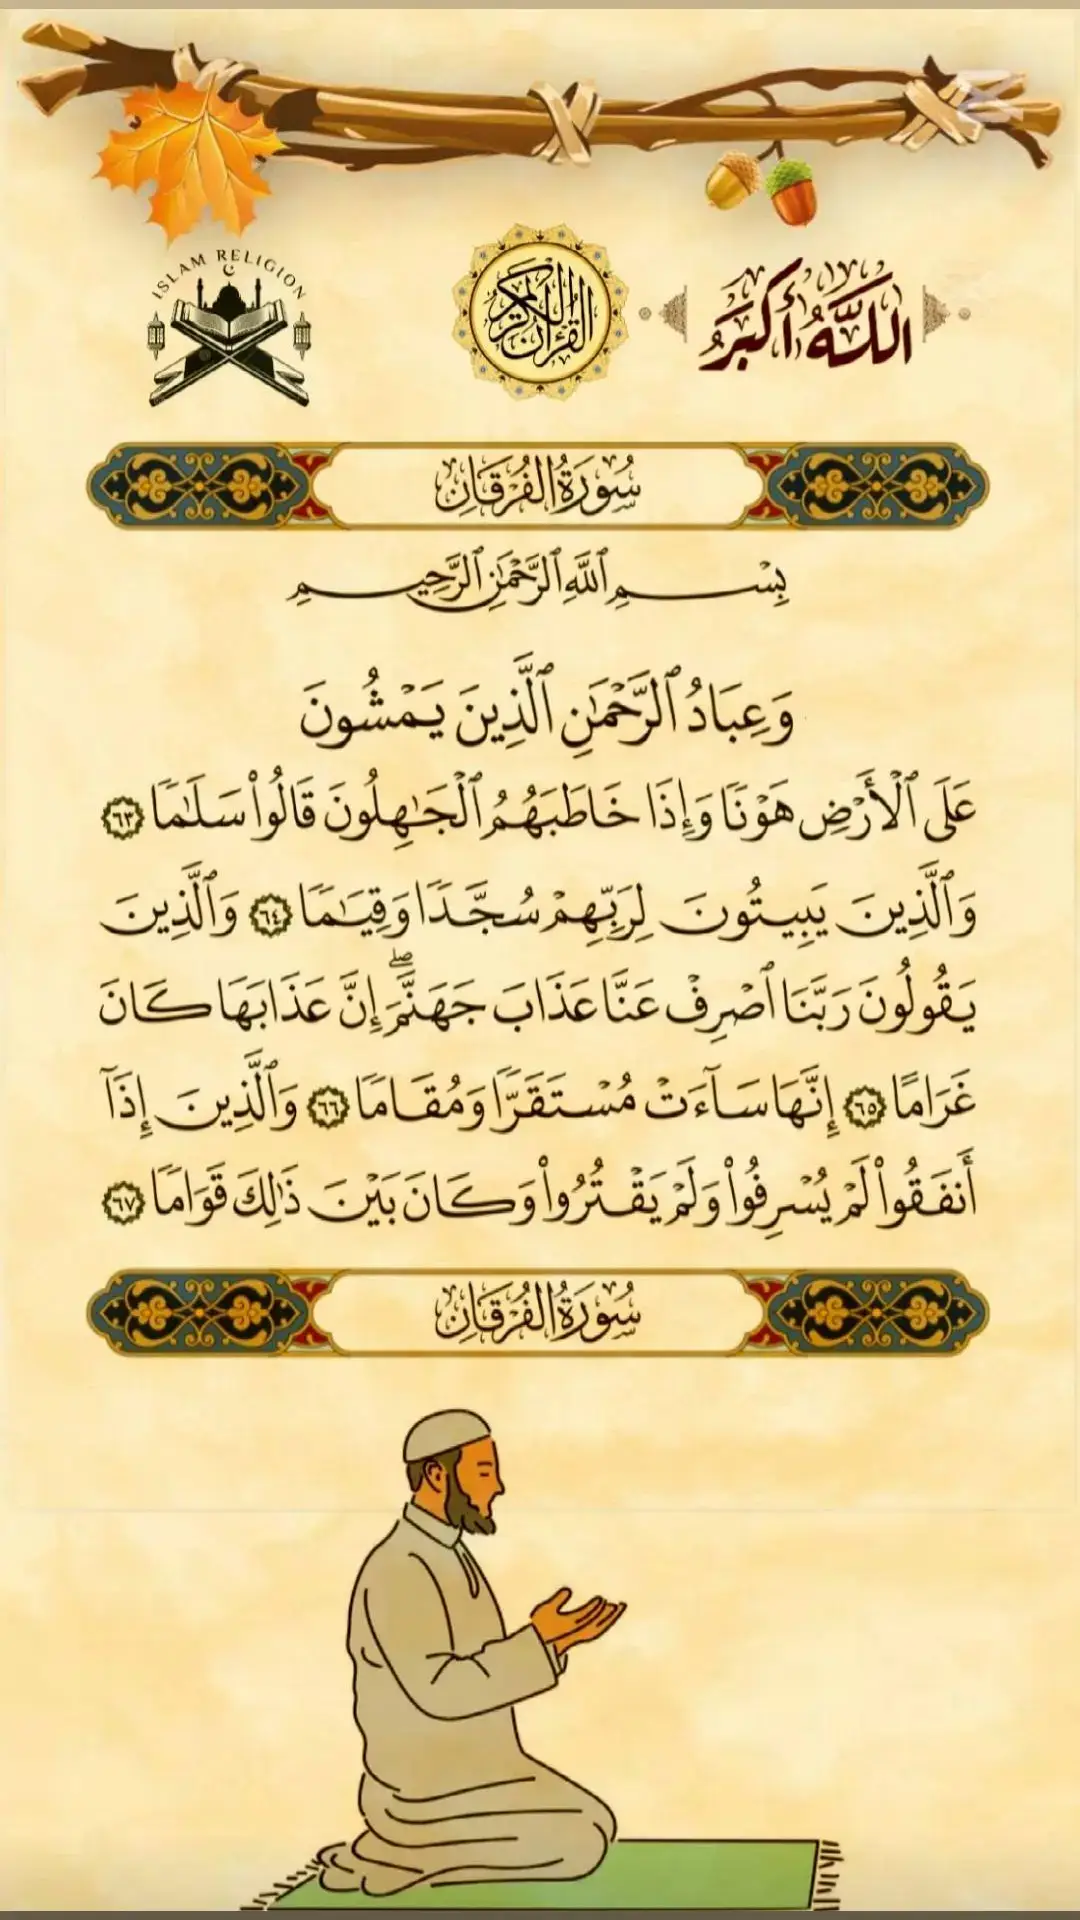 ISLAM RELIGION
القرآن الكريم
اللَّهُ أَكْبَرُ
سُورَةُ الْفُرْقَانِ
بِسْمِ ٱللَّهِ ٱلرَّحْمَٰنِ ٱلرَّحِيمِ
وَعِبَادُ ٱلرَّحْمَٰنِ ٱلَّذِينَ يَمْشُونَ
عَلَى ٱلْأَرْضِ هَوْنًا وَإِذَا خَاطَبَهُمُ ٱلْجَٰهِلُونَ قَالُوا۟ سَلَٰمًا ٦٣
وَٱلَّذِينَ يَبِيتُونَ لِرَبِّهِمْ سُجَّدًا وَقِيَٰمًا ٦٤ وَٱلَّذِينَ
يَقُولُونَ رَبَّنَا ٱصْرِفْ عَنَّا عَذَابَ جَهَنَّمَ ۖ إِنَّ عَذَابَهَا كَانَ
غَرَامًا ٦٥ إِنَّهَا سَآءَتْ مُسْتَقَرًّا وَمُقَامًا ٦٦ وَٱلَّذِينَ إِذَآ
أَنفَقُوا۟ لَمْ يُسْرِفُوا۟ وَلَمْ يَقْتُرُوا۟ وَكَانَ بَيْنَ ذَٰلِكَ قَوَامًا ٦٧
سُورَةُ الْفُرْقَانِ